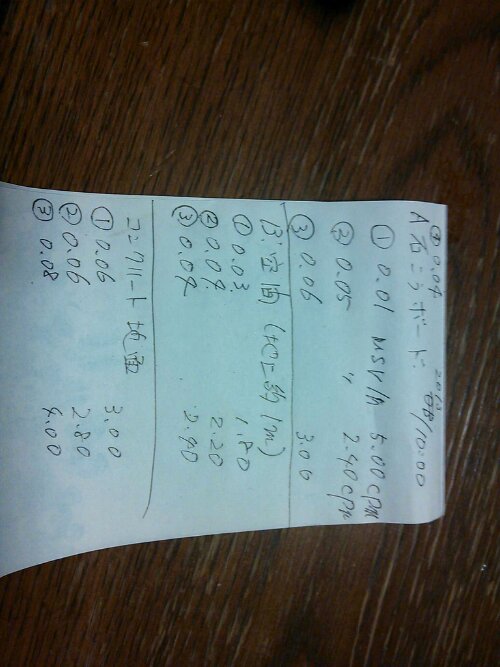 ④ 0.04
A 石こうボード. 10:00
① 0.01 MSV/h 5.00 cpm
② 0.05 〃 2.40 cpm
③ 0.06 3.00
B. 空間 (地上約1m)
① 0.03 1.80
② 0.07 2.20
③ 0.07 2.40
コンクリート地面
① 0.06 3.00
② 0.06 2.80
③ 0.08 4.00